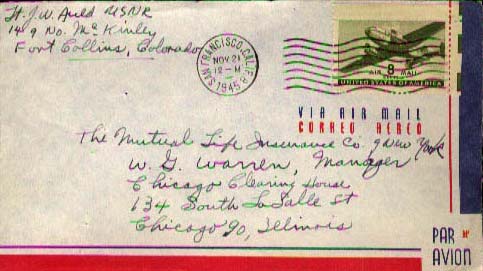 Lt. J. W. Auld USNR
149 No. McKinley
Fort Collins, Colorado
SAN FRANCISCO, CALIF.
NOV 21
12 - M
1945
8¢
AIR MAIL
UNITED STATES OF AMERICA
VIA AIR MAIL
CORREO AEREO
The Mutual Life Insurance Co. of New York
W. G. Warren, Manager
Chicago Clearing House
134 South La Salle St
Chicago 90, Illinois
PAR
AVION